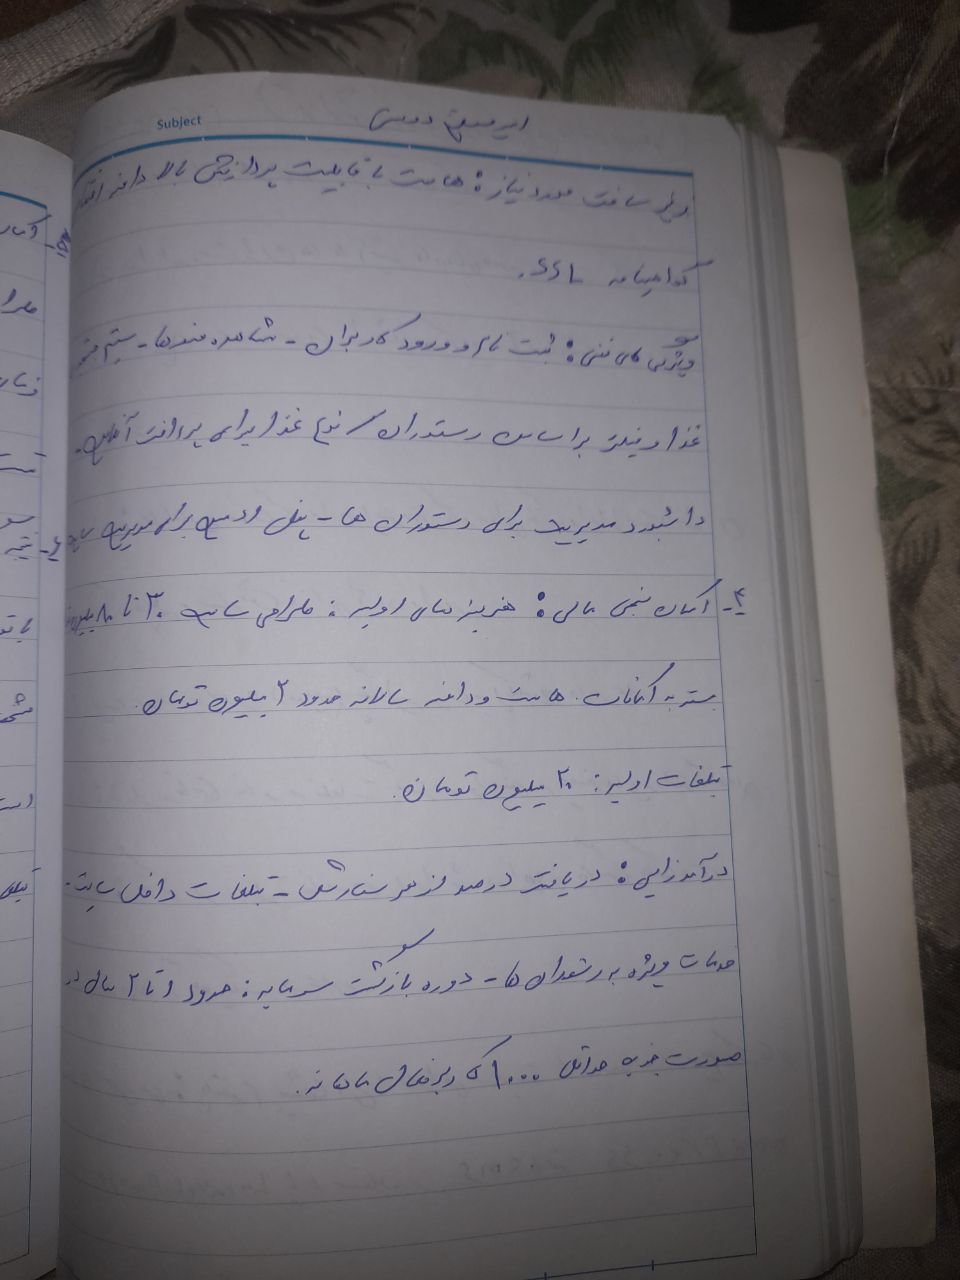 Subject
زیر ساخت مورد نیاز: هاست با قابلیت پردازش بالا دامنه
گواهینامه SSL.
ویژگی های فنی: ثبت نام و ورود کاربران - مشاهده منوها - سیستم
غذا و فیلتر بر اساس رستوران / نوع غذا برای پرداخت آنلاین.
داشبورد مدیریت برای رستوران ها - پنل ادمین برای مدیریت
۴- امکان سنجی مالی: هزینه های اولیه: طراحی سایت ۳۰ تا ۸۰
بسته به امکانات. هاست و دامنه سالانه حدود ۲ میلیون تومان.
تبلیغات اولیه: ۲۰ میلیون تومان.
درآمدزایی: دریافت درصد از هر سفارش - تبلیغات داخل سایت.
خدمات ویژه به رستوران ها - دوره بازگشت سرمایه: حدود ۱ تا ۲ سال در
صورت جذب حداقل ۱۰۰۰ کاربر فعال ماهانه.